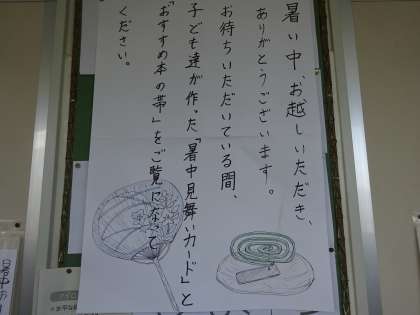 暑い中、お越しいただき、
ありがとうございます。
お待ちいただいている間、
子ども達が作った「暑中見舞いカード」と
「おすすめ本の帯」をご覧になって
ください。